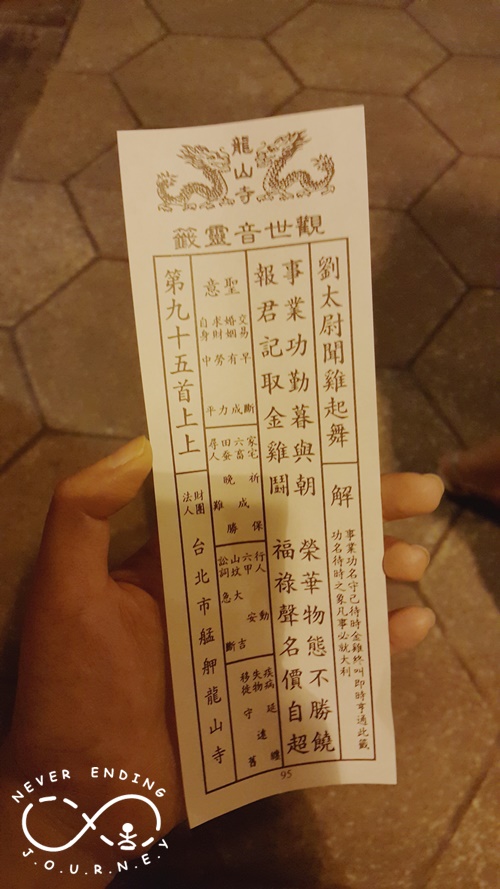 龍山寺
觀世音靈籤
劉太尉聞雞起舞
解
事業功名守己待時金雞終叫即時亨通此籤
功名待時之象凡事必就大利
事業功勤暮與朝 榮華物態不勝饒
報君記取金雞鬪 福祿聲名價自超
聖意
交易 早斷
婚姻 有成
求財 勞力
自身 中平
家宅 祈保
六畜 勝
田蚕 晚成
尋人 難
行人 動
六甲 安
山坟 大吉
訟詞 急斷
疾病 延纏
失物 速
移徙 守舊
第九十五首上上
財團法人 台北市艋舺龍山寺
95
NEVER ENDING
J.O.U.R.N.E.Y